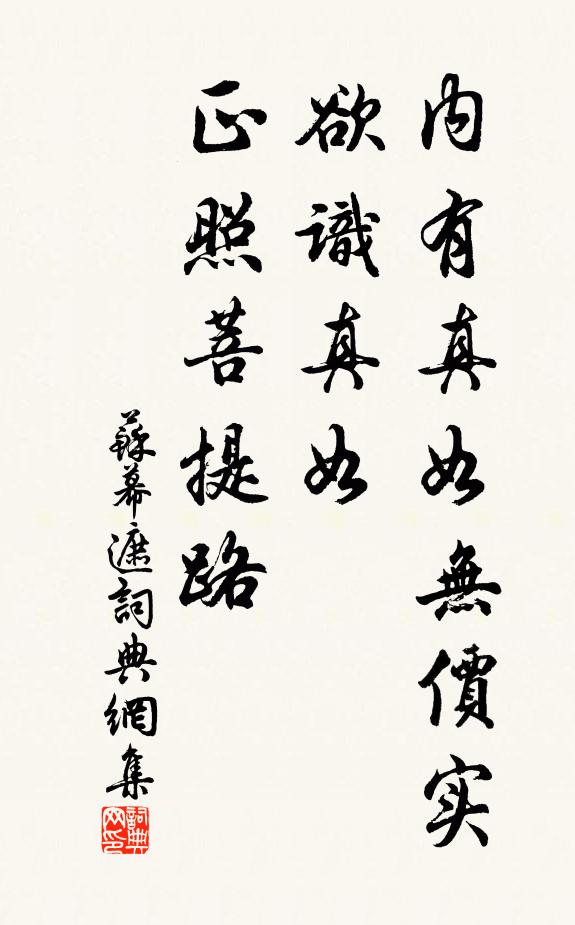 内有真如無價实
欲識真如
正照菩提路
蘇幕遮詞典網集
詞典网印